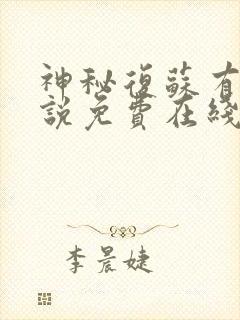 神秘復蘇有
說免費在綫
李晨婕